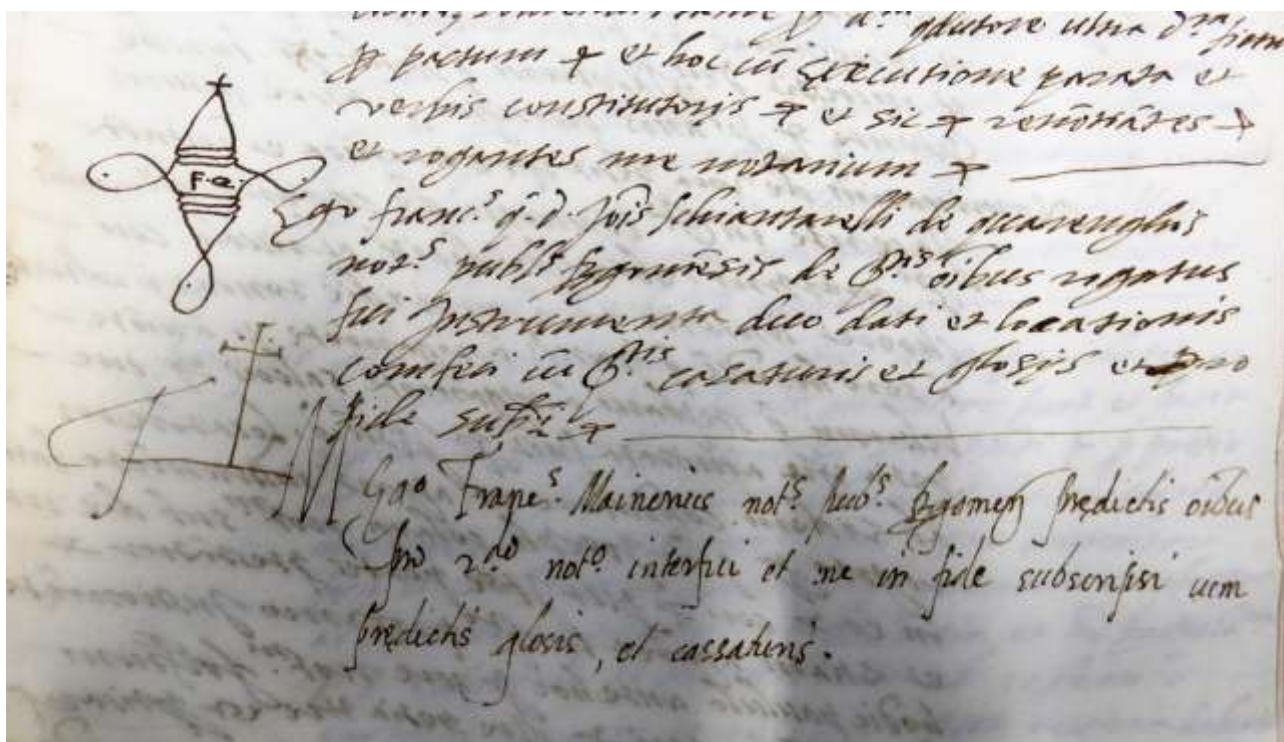 ultra d.
pactum & et hoc cū executione parata et
verbis constitutorijs & et sic & renōtiātes &
et rogantes me notarium &
F. Q.
Ego franc.s q. d. Jois schiantarelli de occarenghis
not.s publ.s bgomēsis de p.tis oibus rogatus
fui Instrumenta duo dati et locationis
confeci cū p.tis casaturis et glosijs et pro
fide sub.si &
F M
Ego Franc.s Mainerius not.s pub.s bgomen prędictis oibus
pro 2.do not.o interfui et me in fide subscripsi cum
prędictis glosis, et cassaturis.